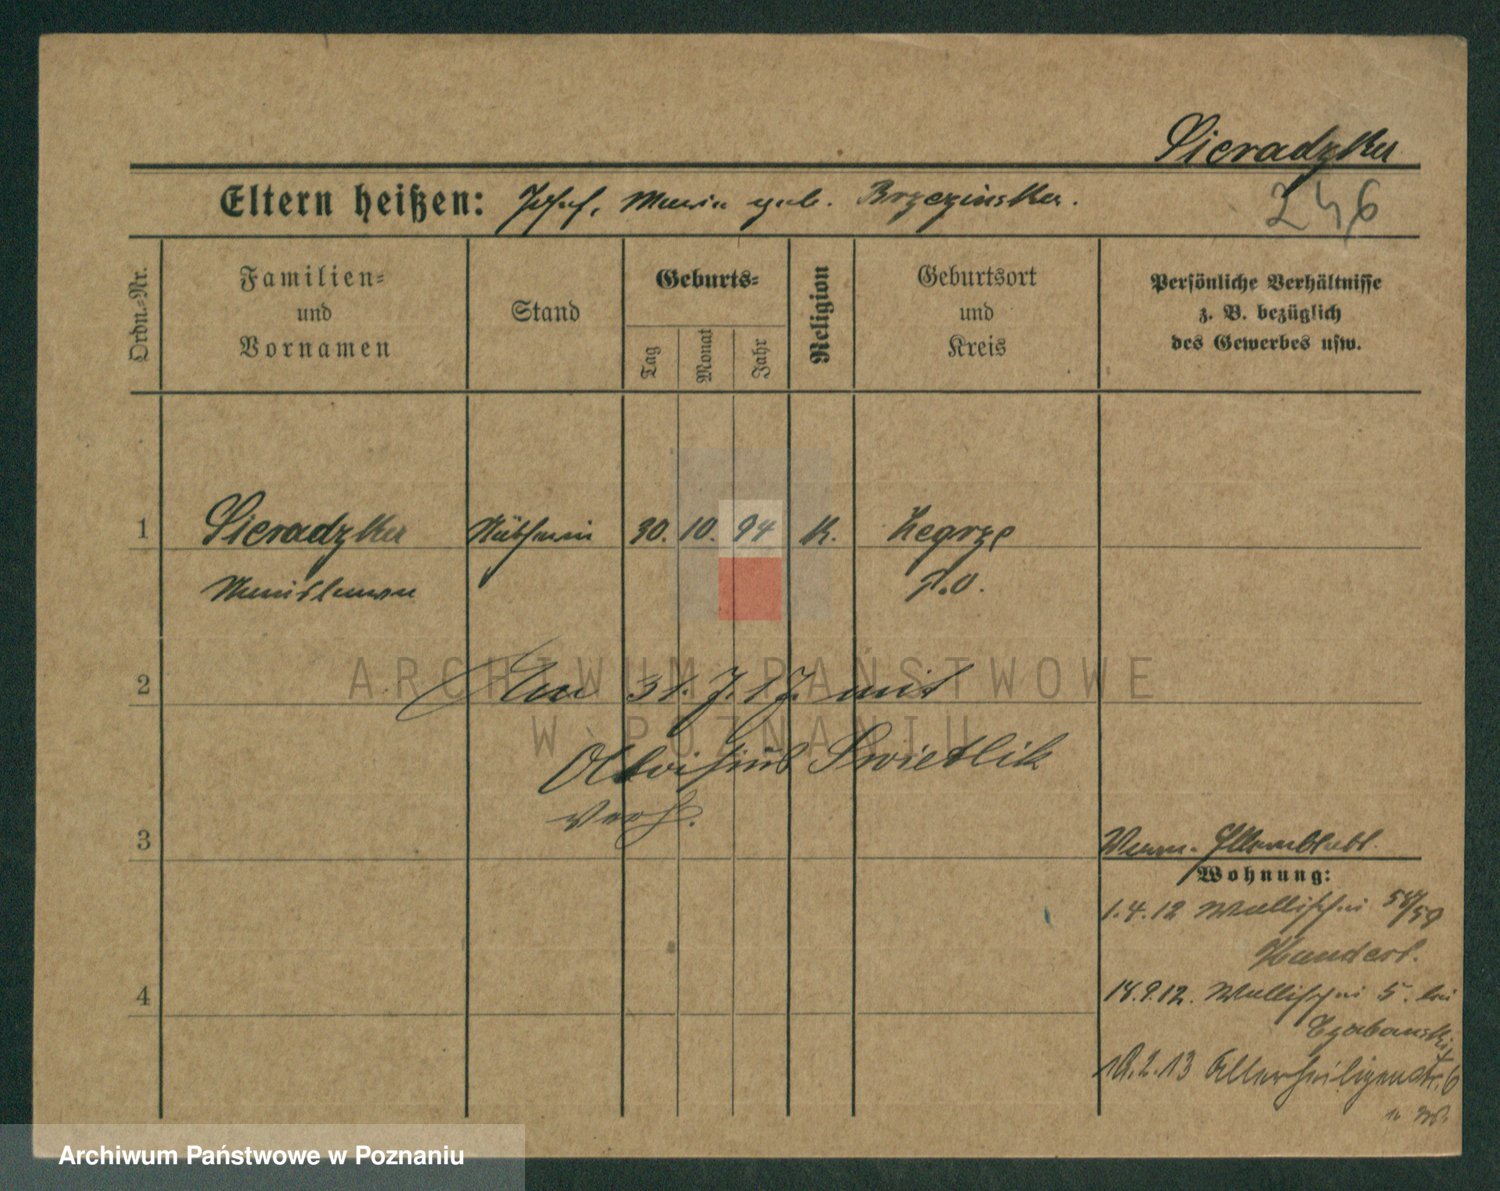 Sieradzka
Eltern heißen: Josef, Maria geb. Brzezinska.
246
Ordn.-Nr.
Familien-
und
Vornamen
Stand
Geburts-
Tag
Monat
Jahr
Religion
Geburtsort
und
Kreis
Persönliche Verhältnisse
z. B. bezüglich
des Gewerbes usw.
1 Sieradzka Näherin 30. 10. 94 K. Zegrze
P.O.
2 Am 31. 7. 17. mit
Swietlik
verh.
3
Wohnung:
1.4.12 Wallischei 58/59
4
18.9.12. Wallischei 5. bei
Czabanski
10.2.13 Allerheiligenstr. 6
ARCHIWUM PAŃSTWOWE
W POZNANIU
Archiwum Państwowe w Poznaniu